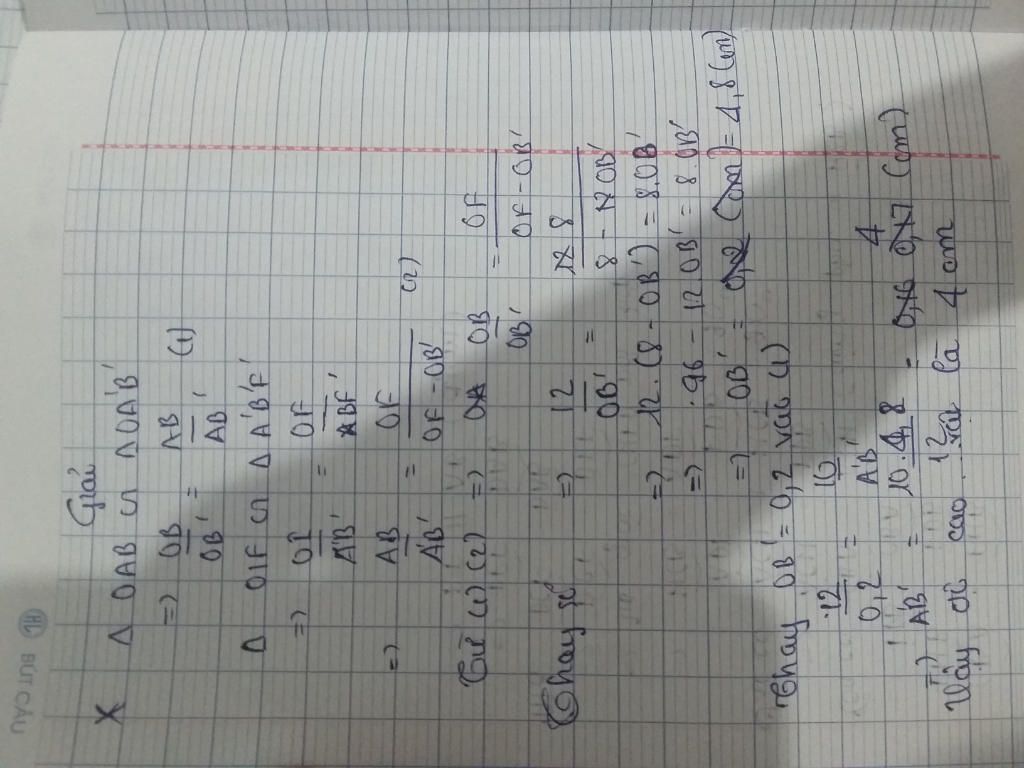 BÚT CÂU
Giải
X Δ OAB ∽ Δ OA'B'
=> OB/OB' = AB/AB' (1)
Δ OIF ∽ Δ A'B'F'
=> OI/A'B' = OF/ABF'
=> AB/A'B' = OF/OF-OB' (2)
Từ (1) (2) => OB/OB' = OF/OF-OB'
Thay số => 12/OB' = 8/8-OB'
=> 12.(8-OB') = 8.OB'
=> 96 - 12OB' = 8.OB'
=> OB' = 0,2 (cm) = 4,8 (cm)
Thay OB' = 0,2 vào (1)
12/0,2 = 10/A'B'
=> AB' = 10.4,8/12 = 0,16 0,17 4 (cm)
Vậy cao vật là 4 cm